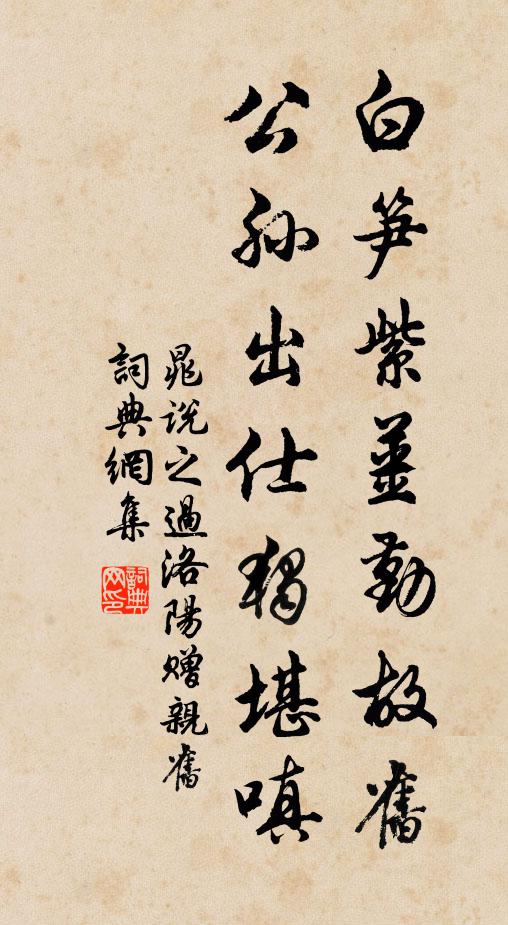 白笋紫薑勤故舊
公孙出仕獨堪嗔
晁说之過洛陽贈親舊
詞典網集
詞典網印